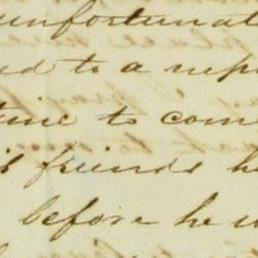 unfortunat
ed to a
time to com
friends he
before he